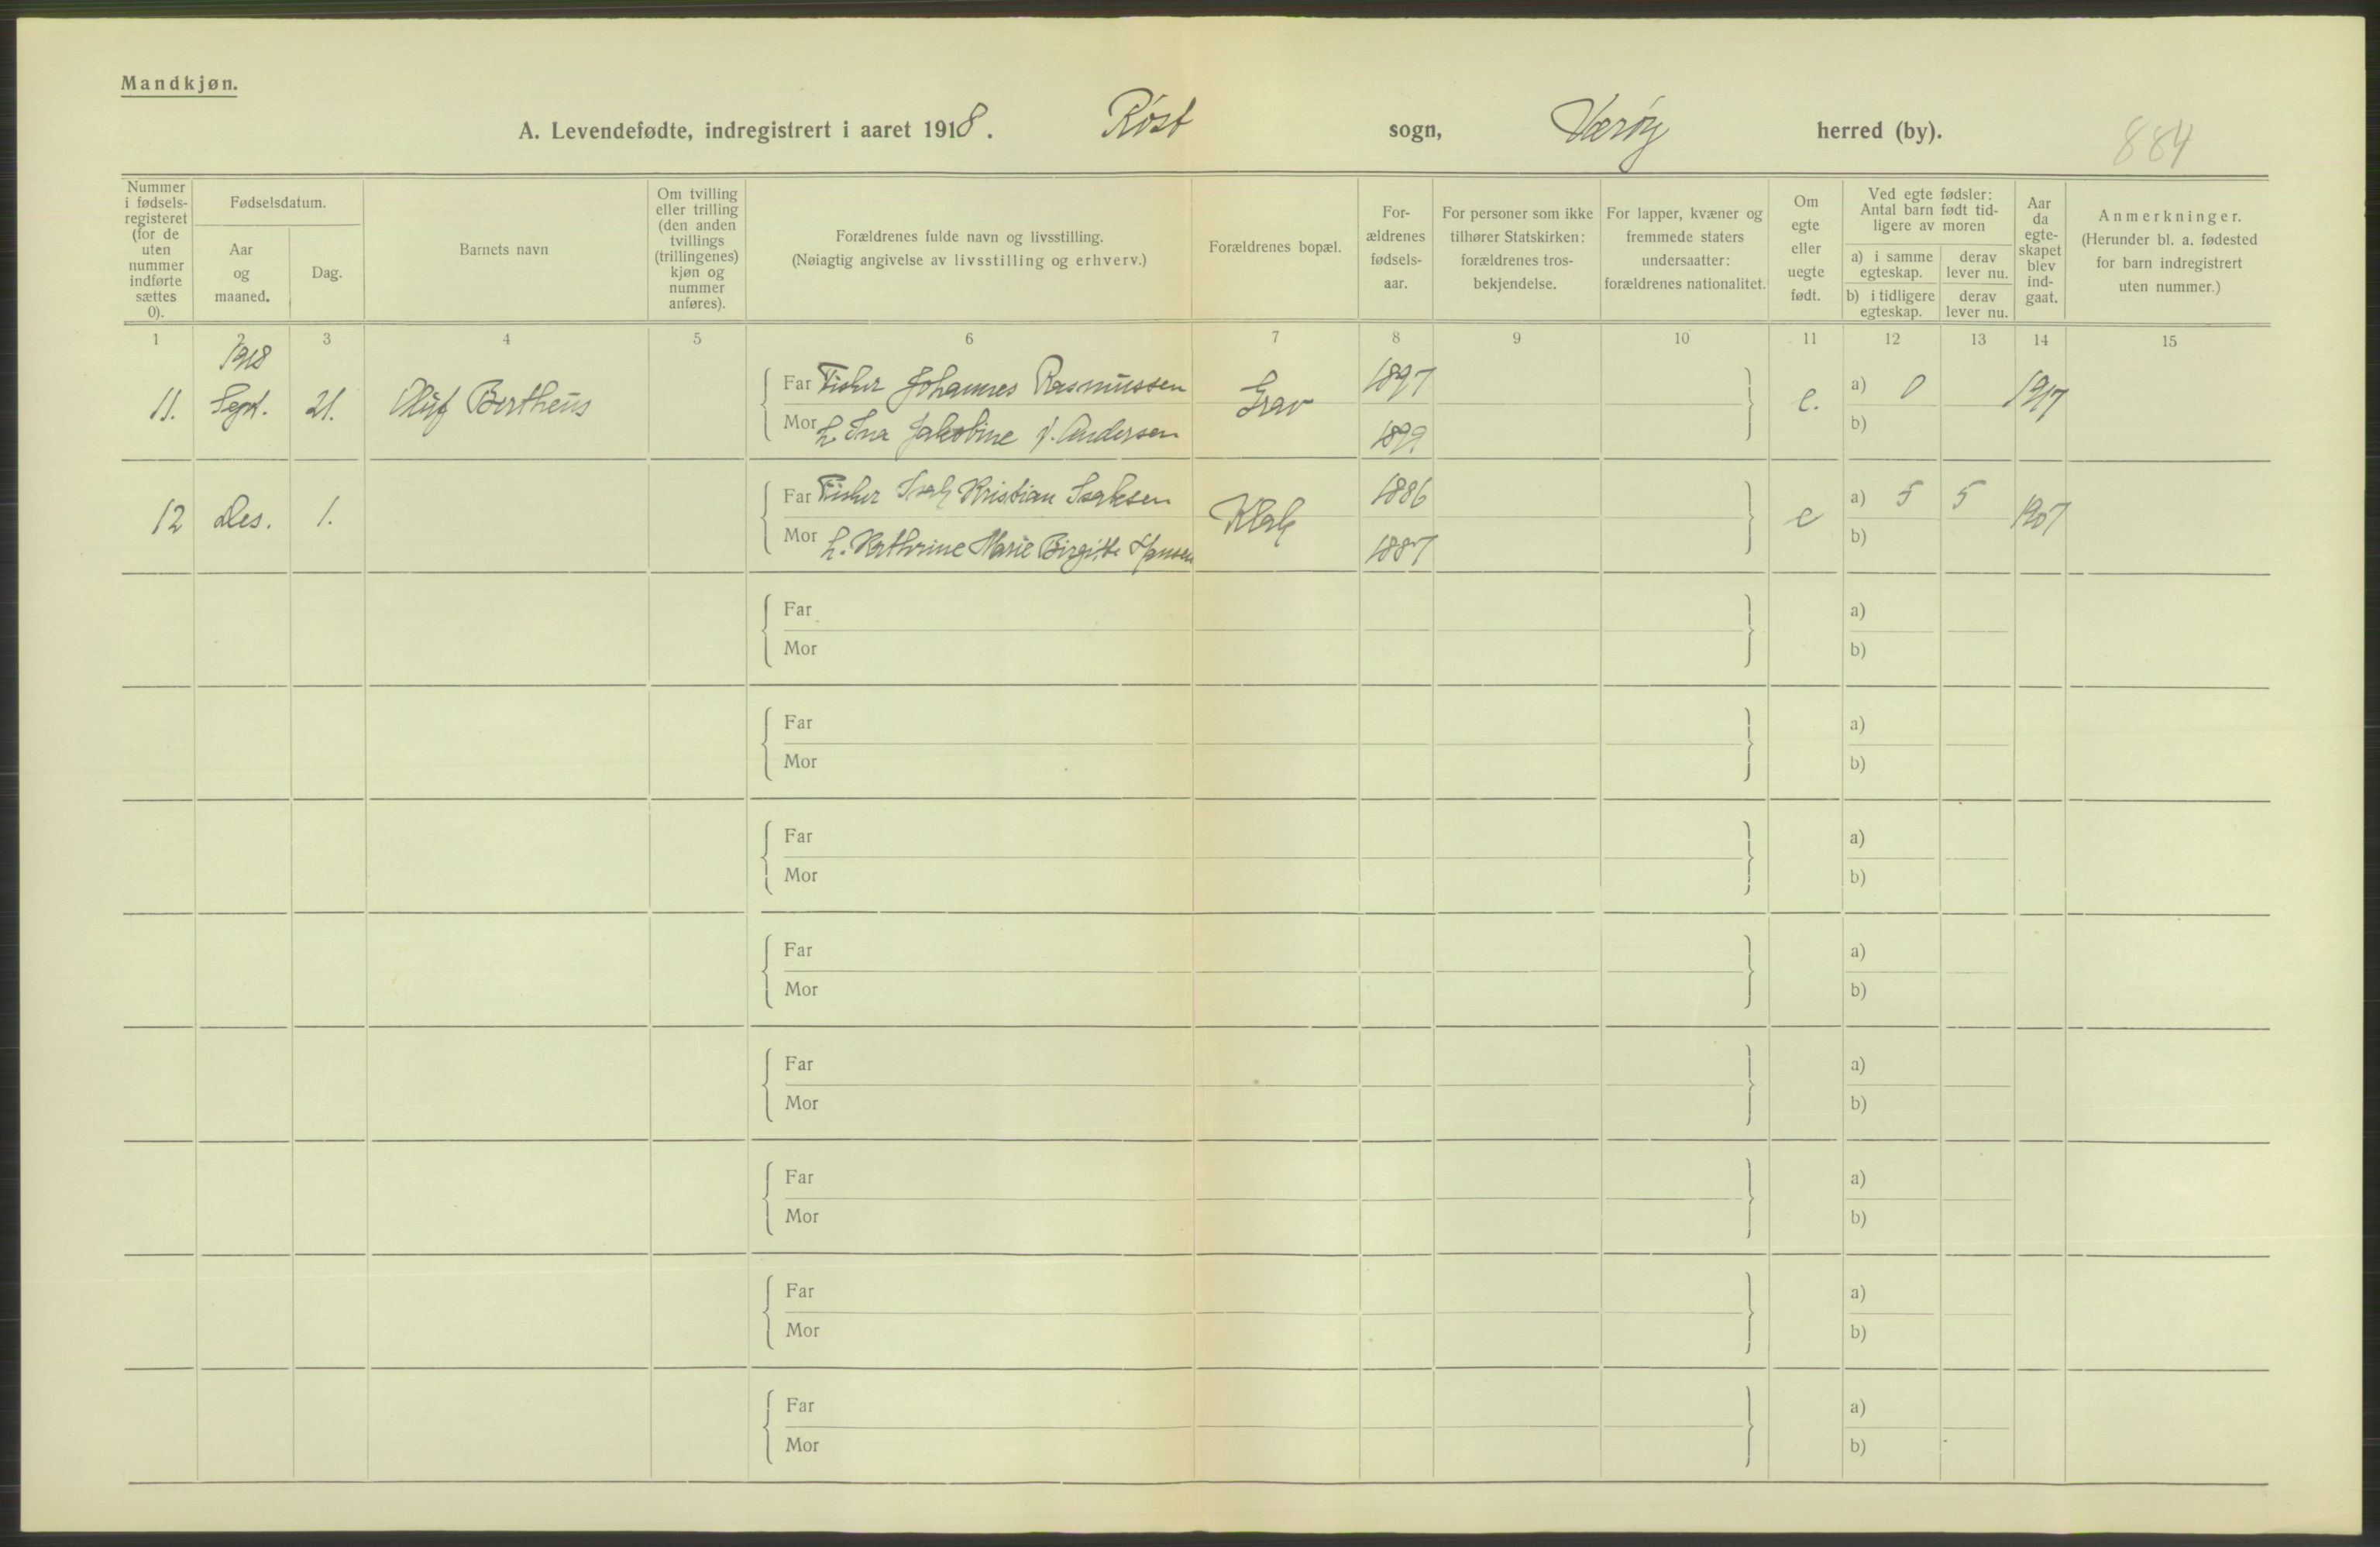 Mandkjøn.
A. Levendefødte, indregistrert i aaret 1918. Röst sogn, Værøy herred (by). 884
Nummer i fødsels- registeret (for de uten nummer indførte sættes 0).
Fødselsdatum.
Aar og maaned.
Dag.
Barnets navn
Om tvilling eller trilling (den anden tvillings (trillingenes) kjøn og nummer anføres).
Forældrenes fulde navn og livsstilling.
(Nøiagtig angivelse av livsstilling og erhverv.)
Forældrenes bopæl.
For- ældrenes fødsels- aar.
For personer som ikke tilhører Statskirken: forældrenes tros- bekjendelse.
For lapper, kvæner og fremmede staters undersaatter: forældrenes nationalitet.
Om egte eller uegte født.
Ved egte fødsler: Antal barn født tid- ligere av moren
a) i samme egteskap.
derav lever nu.
b) i tidligere egteskap.
derav lever nu.
Aar da egte- skapet blev ind- gaat.
Anmerkninger.
(Herunder bl. a. fødested for barn indregistrert uten nummer.)
1 2 3 4 5 6 7 8 9 10 11 12 13 14 15
1918
11. Sept. 21. Oluf Bertheüs Far Fisker Johannes Rasmüssen Grav 1897 e. a) 0 1917
Mor h. Ina Jakobine f. Andersen 1899 b)
12 Des. 1. Far Fisker Isak Kristian Isaksen Klak 1886 e a) 5 5 1907
Mor h. Kathrine Marie Birgitte Hansen 1887 b)
Far a)
Mor b)
Far a)
Mor b)
Far a)
Mor b)
Far a)
Mor b)
Far a)
Mor b)
Far a)
Mor b)
Far a)
Mor b)
Far a)
Mor b)